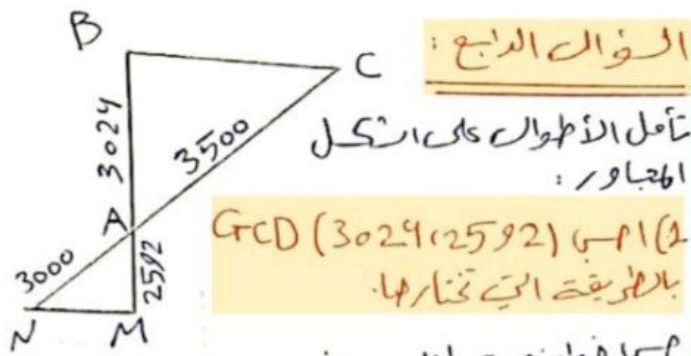 B
C
3024
3500
A
3000
2592
N
M
السؤال الرابع :
تأمل الأطوال على الشكل
المجاور :
1) احسب GCD (3024, 2592)
بالطريقة التي تختارها.